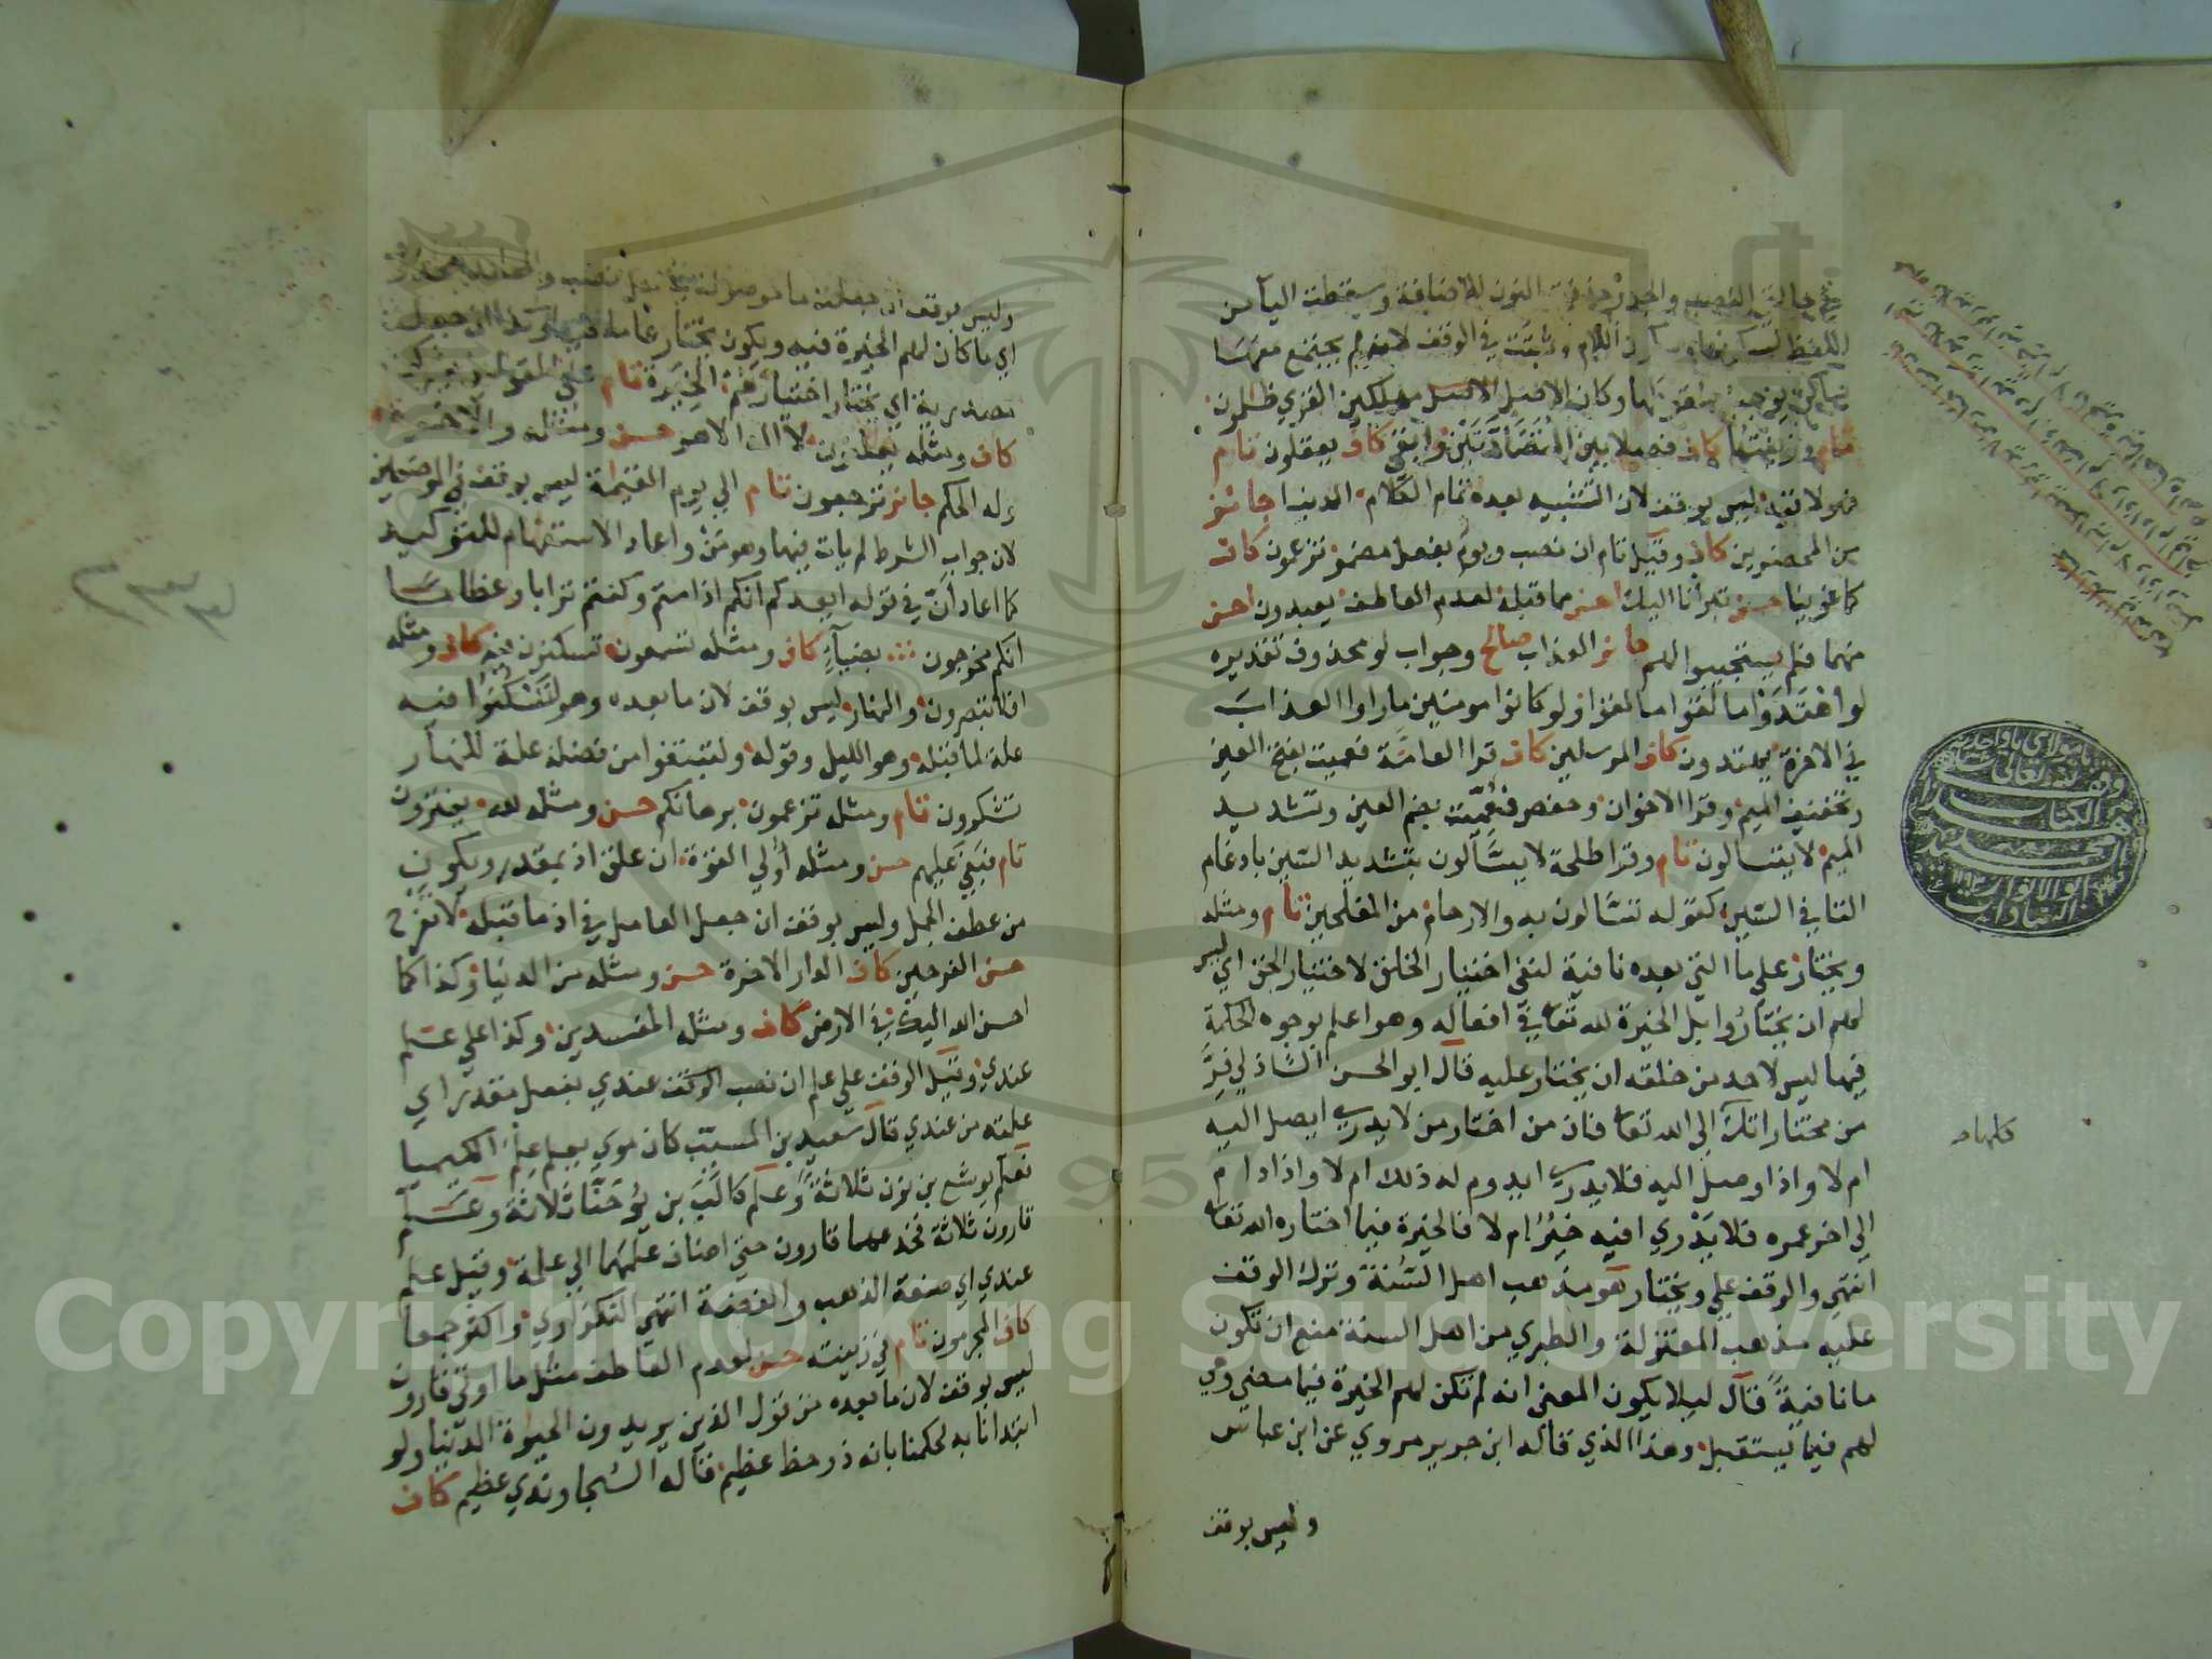 في حالتي النصب والجر حذفت النون للاضافة وسقطت اليا من
اللفظ لسكونها وسكون اللام وثبتت في الوقف لانه لم يجتمع معها
ساكن يوجب سقوطها وكان الاصل مهلكين القري ظلمون
تام وزينتها كاف فصلا بين المتضادتين وابقى كاف يعقلون تام
فهو لاقيه ليس بوقف لان التشبيه بعده تمام الكلام الدنيا جائز
من المحضرين كاف وقيل تام ان نصب ويوم بفعل مضمر تزعمون كاف
كما غوينا حسن تبرأنا اليك احسن مما قبله لعدم العاطف يعبدون احسن
منهما فلم يستجيبوا لهم جائز العذاب صالح وجواب لو محذوف تقديره
لو اهتدوا ما لقوا ما لقوا ولو كانوا مومنين ما راوا العذاب
في الاخرة يهتدون كاف المرسلين كاف قرا العامة فعميت بفتح العين
وتخفيف الميم وقرا الاخوان وحفص فعميت بضم العين وتشديد
الميم لا يتسالون تام وقرا طلحة لا يسّآلون بتشديد السين بادغام
التا في السين كقوله تسّالون به والارحام من المفلحين تام ومثله
ويختار على ما التي بعده نافية لنفي اختيار الخلق لا اختيار الحق اي ليس
لهم ان يختاروا بل الخيرة لله تعا في افعاله وهو اعلم بوجوه الحكمة
فيها ليس لاحد من خلقه ان يختار عليه قال ابو الحسن الشاذلي فرّ
من مختاراتك الي الله تعا فان من اختار من لا يدري ايصل اليه
ام لا واذا وصل اليه فلا يدري ايدوم له ذلك ام لا واذا دام
الي اخر عمره فلا يدري افيه خير ام لا فالخيرة فيما اختاره الله تعا
انتهي والوقف على ويختار هو مذهب اهل السنة وترك الوقف
عليه مذهب المعتزلة والطبري من اهل السنة منع ان تكون
ما نافية قال ليلا يكون المعنى انه لم تكن لهم الخيرة فيما مضى وهي
لهم فيما يستقبل وهذا الذي قاله ابن جرير مروي عن ابن عباس
وليس بوقف
وليس بوقف ان جعلت ما موصولة في محل نصب والعائد محذوف
اي ما كان لهم الخيرة فيه ويكون يختار عاملا فيها وكذا ان جعلت
مصدرية اي يختار اختيارهم الخيرة تام على القولين يشركون
كاف ومثله يعلنون لا اله الا هو حسن ومثله والاخرة
وله الحكم جائز ترجعون تام الي يوم القيمة ليس بوقف في الموضعين
لان جواب الشرط لم يات بينهما وهو من واعاد الاستفهام للتوكيد
كما اعاد انّ في قوله ايعدكم انكم اذا متم وكنتم ترابا وعظاما
انكم مخرجون بضياء كاف ومثله تسمعون تسكنون فيه كاف ومثله
افلا تبصرون والنهار ليس بوقف لان ما بعده وهو لتسكنوا فيه
علة لما قبله وهو الليل وقوله ولتبتغوا من فضله علة للنهار
تشكرون تام ومثله تزعمون برهانكم حسن ومثله لله يفترون
تام فبغي عليهم حسن ومثله أولي القوة ان علق اذ بمقدر ويكون
من عطف الجمل وليس بوقف ان جعل العامل في اذ ما قبله لا تفرح
حسن الفرحين كاف الدار الاخرة حسن ومثله من الدنيا وكذا كما
احسن الله اليك في الارض كاف ومثله المفسدين وكذا على علم
عندي وقيل الوقف علي علم ان نصب الوقف عندي بفعل مقدر اي
علمته من عندي قال سعيد بن المسيّب كان موسي يعلم علم الكيميا
فعلم يوشع بن نون ثلاثة وعلم كالب بن يوحنا ثلاثة وعلم
قارون ثلاثة فخدعهما قارون حتي اضاف علمهما الي علمه وقيل علم
عندي اي صنعة الذهب والفضة انتهي النكزاوي واكثر جمعا
كاف المجرمون تام في زينته حسن لعدم العاطف مثل ما اوتي قارون
ليس بوقف لان ما بعده من قول الذين يريدون الحيوة الدنيا ولو
ابتدانا به لحكمنا بانه ذو حظ عظيم قاله السجاوندي عظيم كاف
Copyright © King Saud University